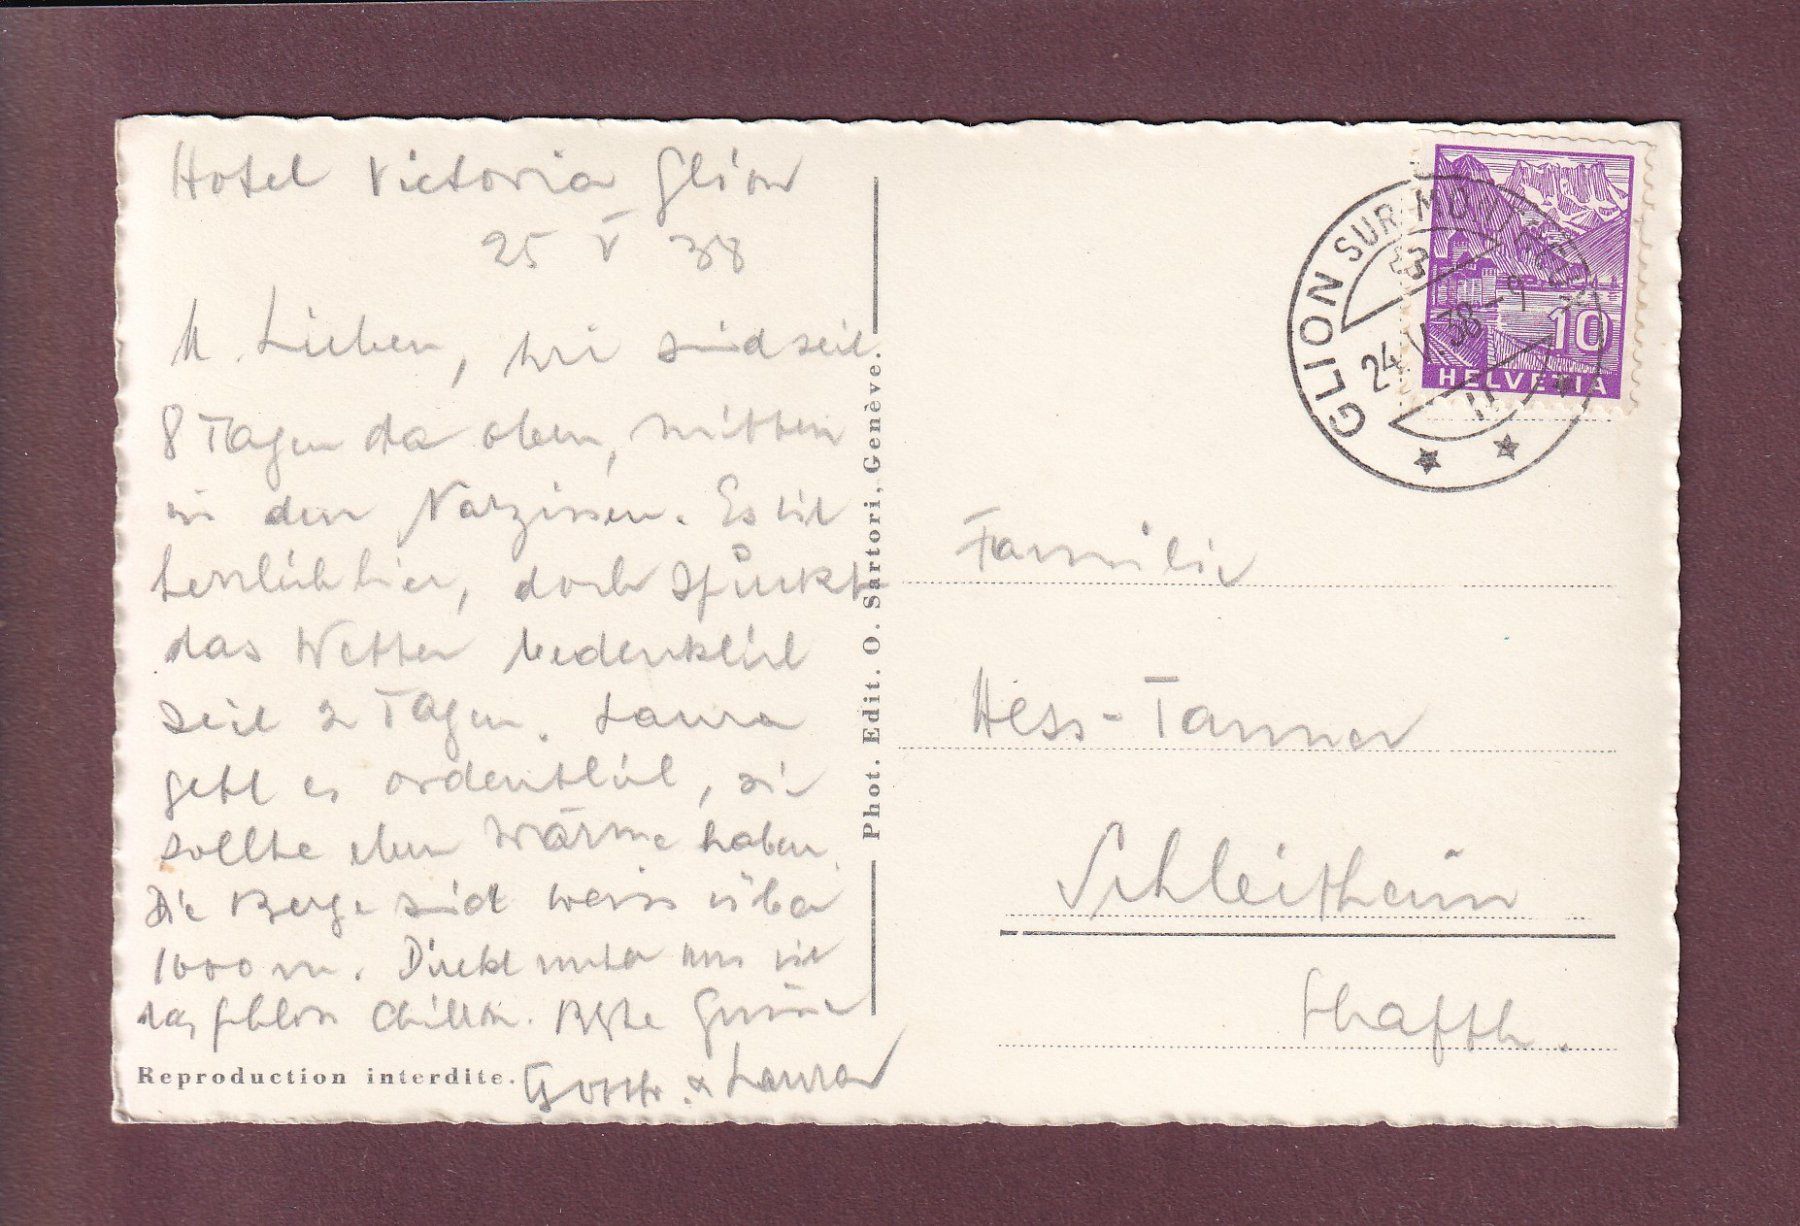 Hotel Victoria Glion
25 V 38
M. Lieben, wir sind seit
8 Tagen da oben, mitten
in den Narzissen. Es ist
herrlich hier, doch spuckt
das Wetter bedenklich
seit 2 Tagen. Laura
geht es ordentlich, sie
sollte eben Wärme haben.
Die Berge sind weiss über
1000 m. Direkt unter uns ist
das Schloss Chillon. Beste Grüsse
Gottfr. & Laura
Reproduction interdite.
Phot. Edit. O. Sartori, Genève.
GLION SUR MONTREUX
24. V. 38 - 9
HELVETIA
10
Familie
Hess-Tanner
Schleitheim
Schaffh.